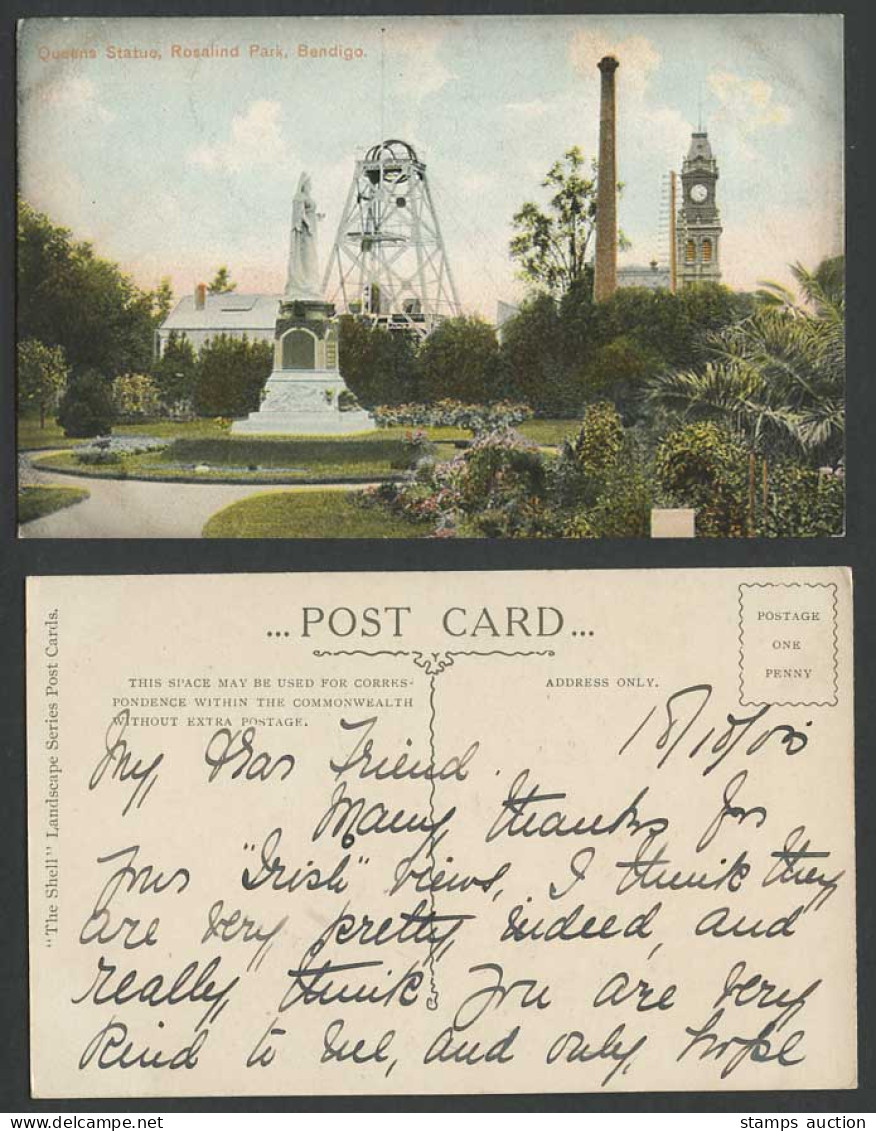 Queens Statue, Rosalind Park, Bendigo.
"The Shell" Landscape Series Post Cards.
... POST CARD ...
THIS SPACE MAY BE USED FOR CORRES-
PONDENCE WITHIN THE COMMONWEALTH
WITHOUT EXTRA POSTAGE.
ADDRESS ONLY.
POSTAGE
ONE
PENNY
18/10/05
My Dear Friend
Many thanks for
your "Irish" views, I think they
are very pretty indeed, and
really think you are very
kind to me, and only hope
stamps auction